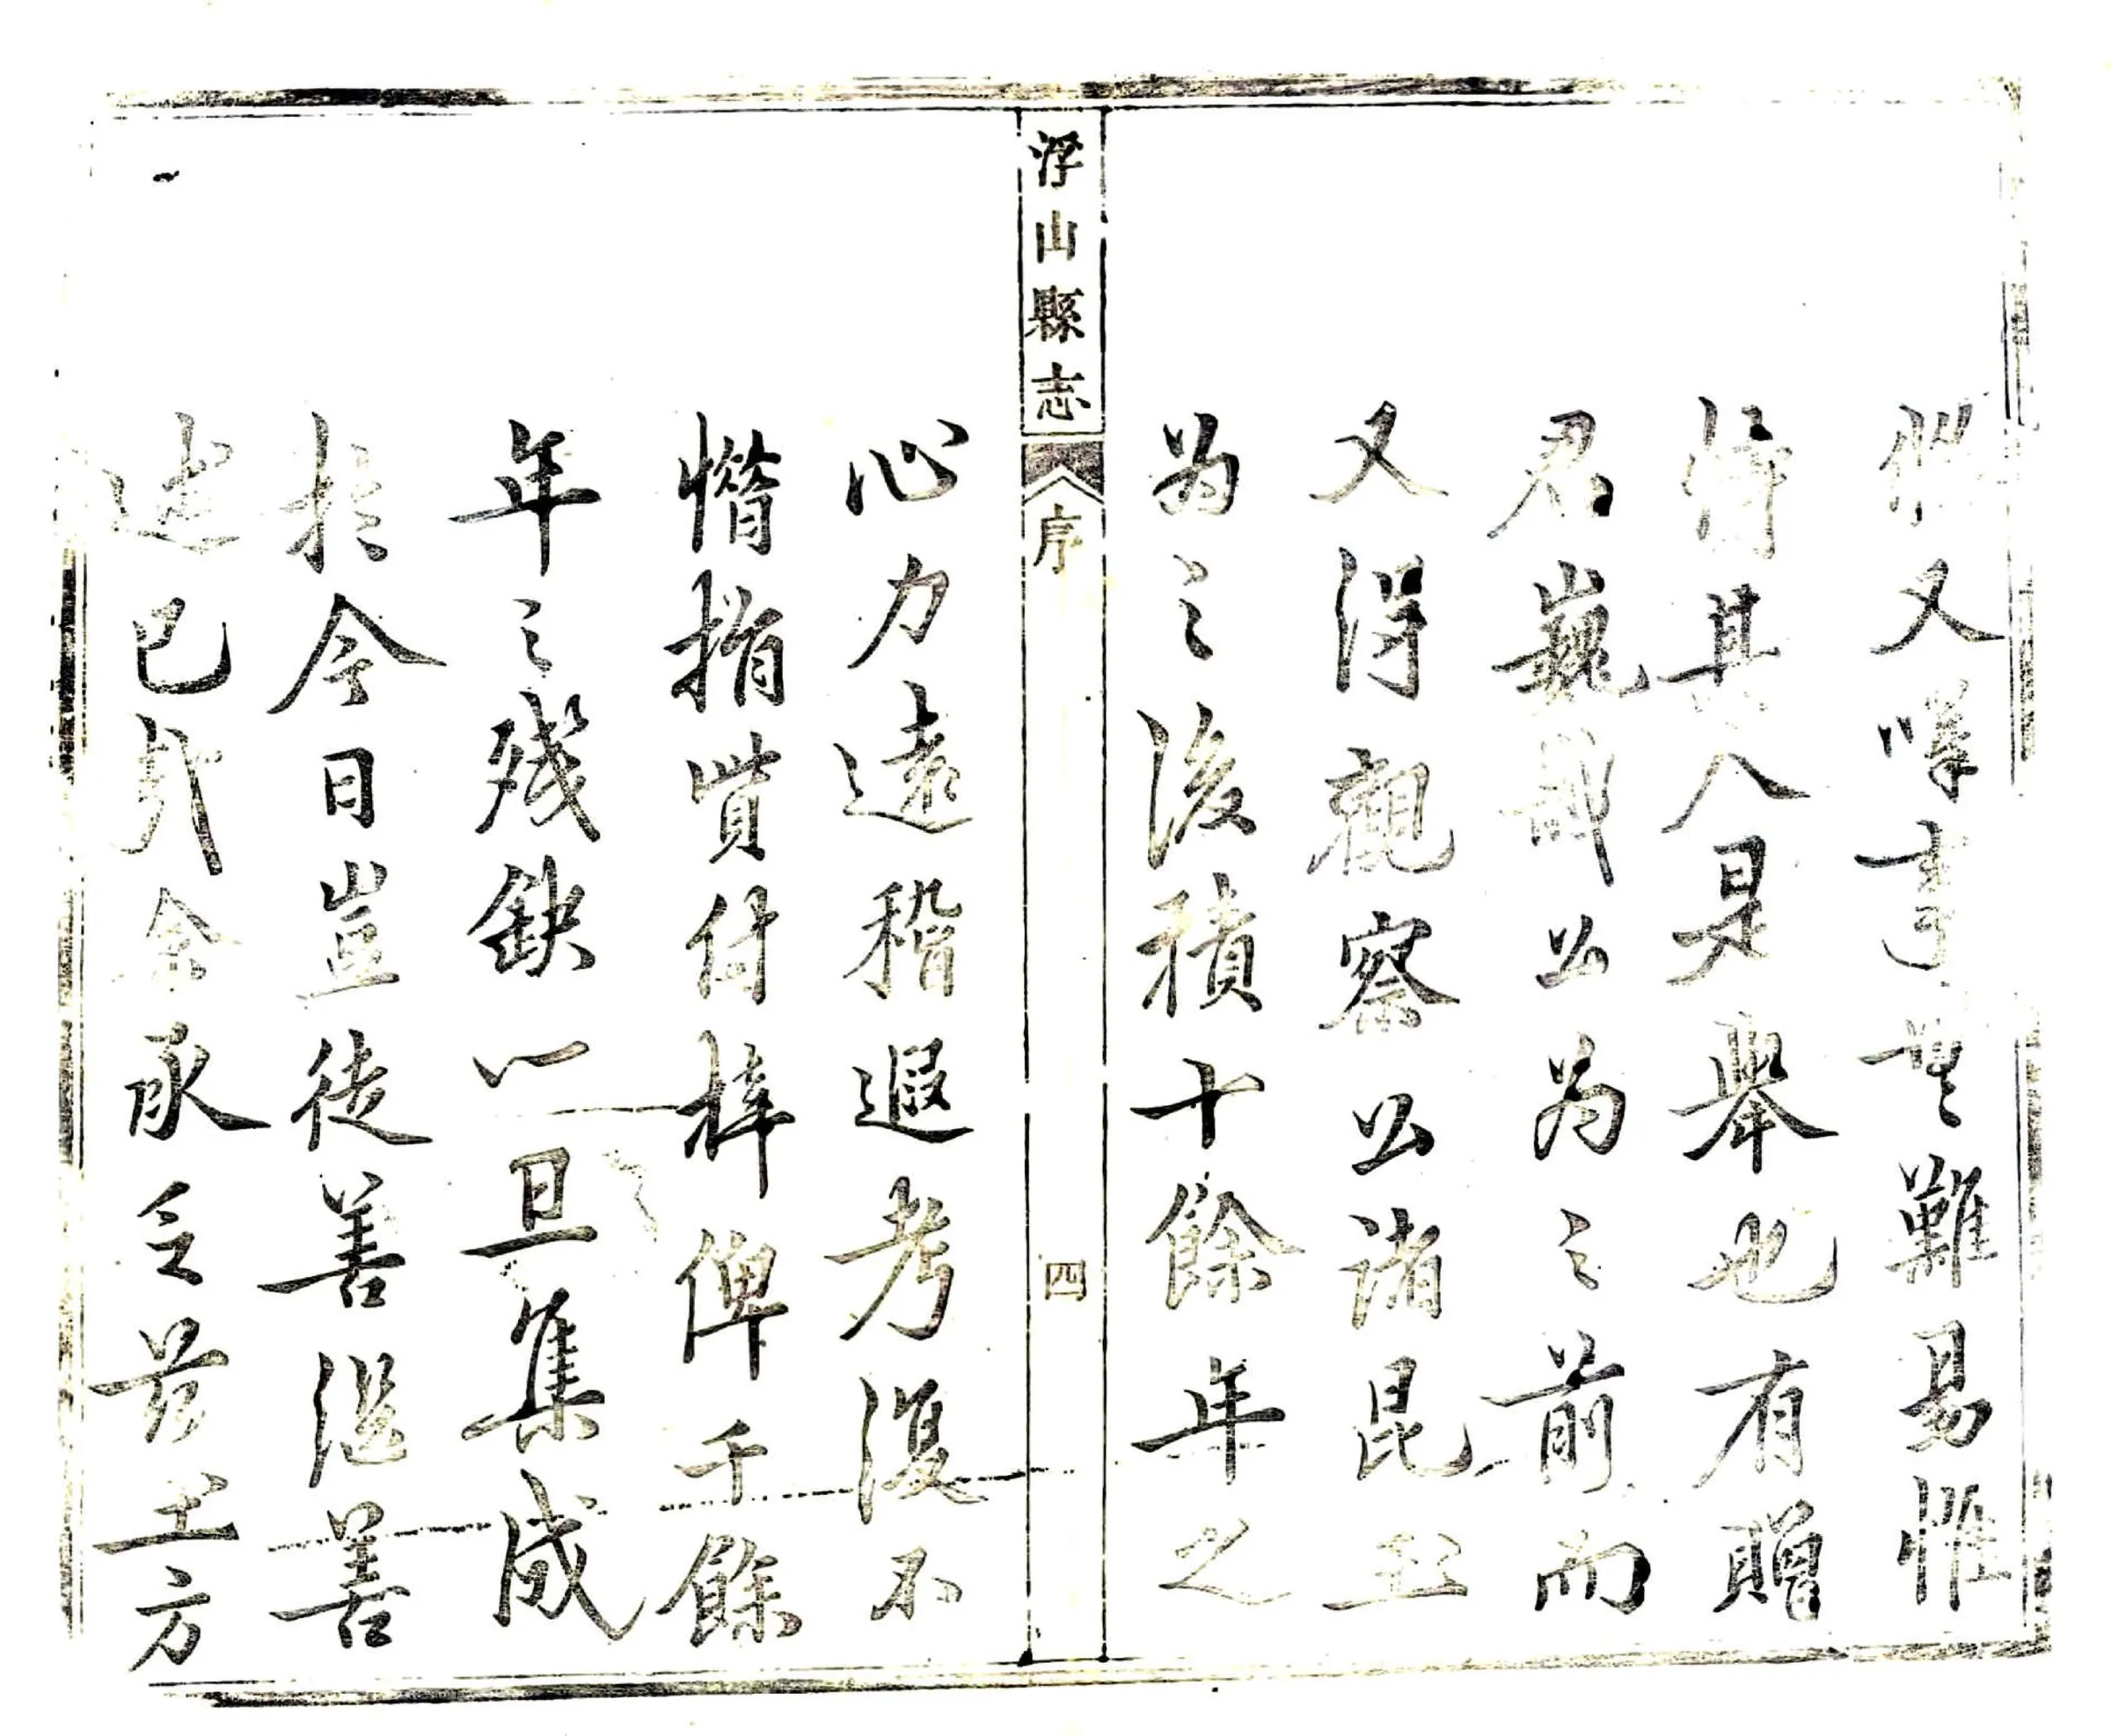 然又嘆事無難易惟
待其人是舉也有贈
君巍公為之前而
又得觀察公諸昆玉
為之後積十餘年之
浮山縣志
序
四
心力遠稽遐考復不
惜捐貲付梓俾千餘
年之殘缺一旦集成
於今日豈徒善繼善
述已哉余承乏茲土方